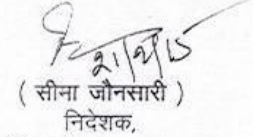 ( सीमा जौनसारी )
निदेशक,